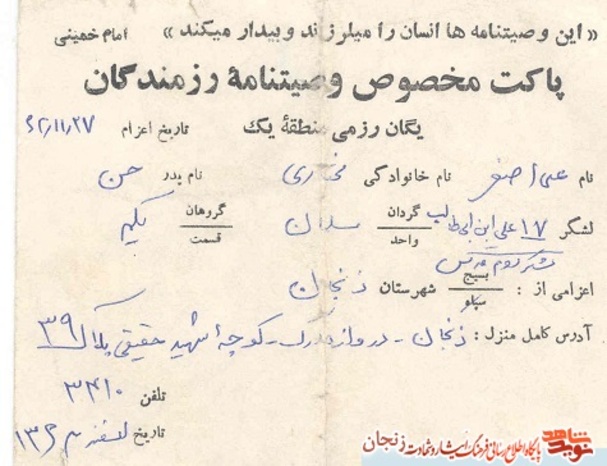 « این وصیتنامه ها انسان را میلرزاند و بیدار میکند » امام خمینی
پاکت مخصوص وصیتنامهٔ رزمندگان
یگان رزمی منطقهٔ یک تاریخ اعزام ۶۲/۱۱/۲۷
نام علی اصغر نام خانوادگی مختاری نام پدر حسن
لشکر ۱۷ علی ابن ابی طالب گردان واحد گروهان قسمت یکم
اعزامی از : بسیج سپاه شهرستان زنجان
آدرس کامل منزل : زنجان - دروازه رک - کوچهٔ شهید حقیقی پلاک ۳۹
تلفن ۳۴۱۰
تاریخ اسفند
نوید شاهد
پایگاه اطلاع رسانی فرهنگ ایثار و شهادت زنجان